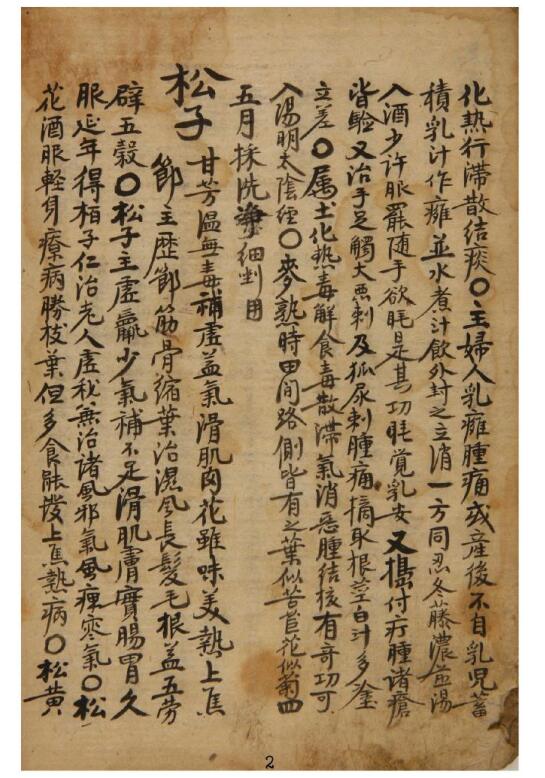 化熱行滯散結痰〇主婦人乳癰腫痛或産後不自乳児蓄
積乳汁作癰並水煮汁飲外封之立消一方同忍冬藤濃煎湯
入酒少許服罷随手欲眠是其功眠覚乳安又搗付疔腫諸瘡
皆験又治手足觸大悪刺及狐尿刺腫痛摘取根茎白汁多塗
立差〇属土化熱毒解食毒散滞氣消悪腫結核有奇功可
入陽明太陰経〇麥熟時田间路側皆有之葉似苦苣花似菊四
五月採洗淨細剉用
松子 甘芳温無毒補虚益氣滑肌肉花雖味美熱上焦
節主歴節筋骨縮葉治濕風長髪毛根益五労
辟五穀〇松子主虚羸少氣補不足滑肌膚實腸胃久
服延年得栢子仁治老人虚秘無治諸風邪氣風痺寒氣〇松
花酒服軽身療病勝枝葉但多食能發上焦熱病〇松黄
2